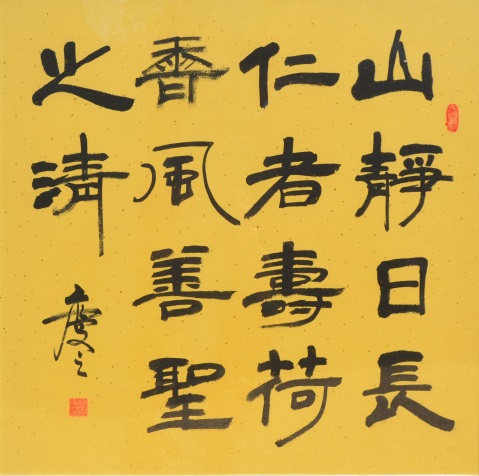 山靜日長
仁者壽荷
香風善聖
之清